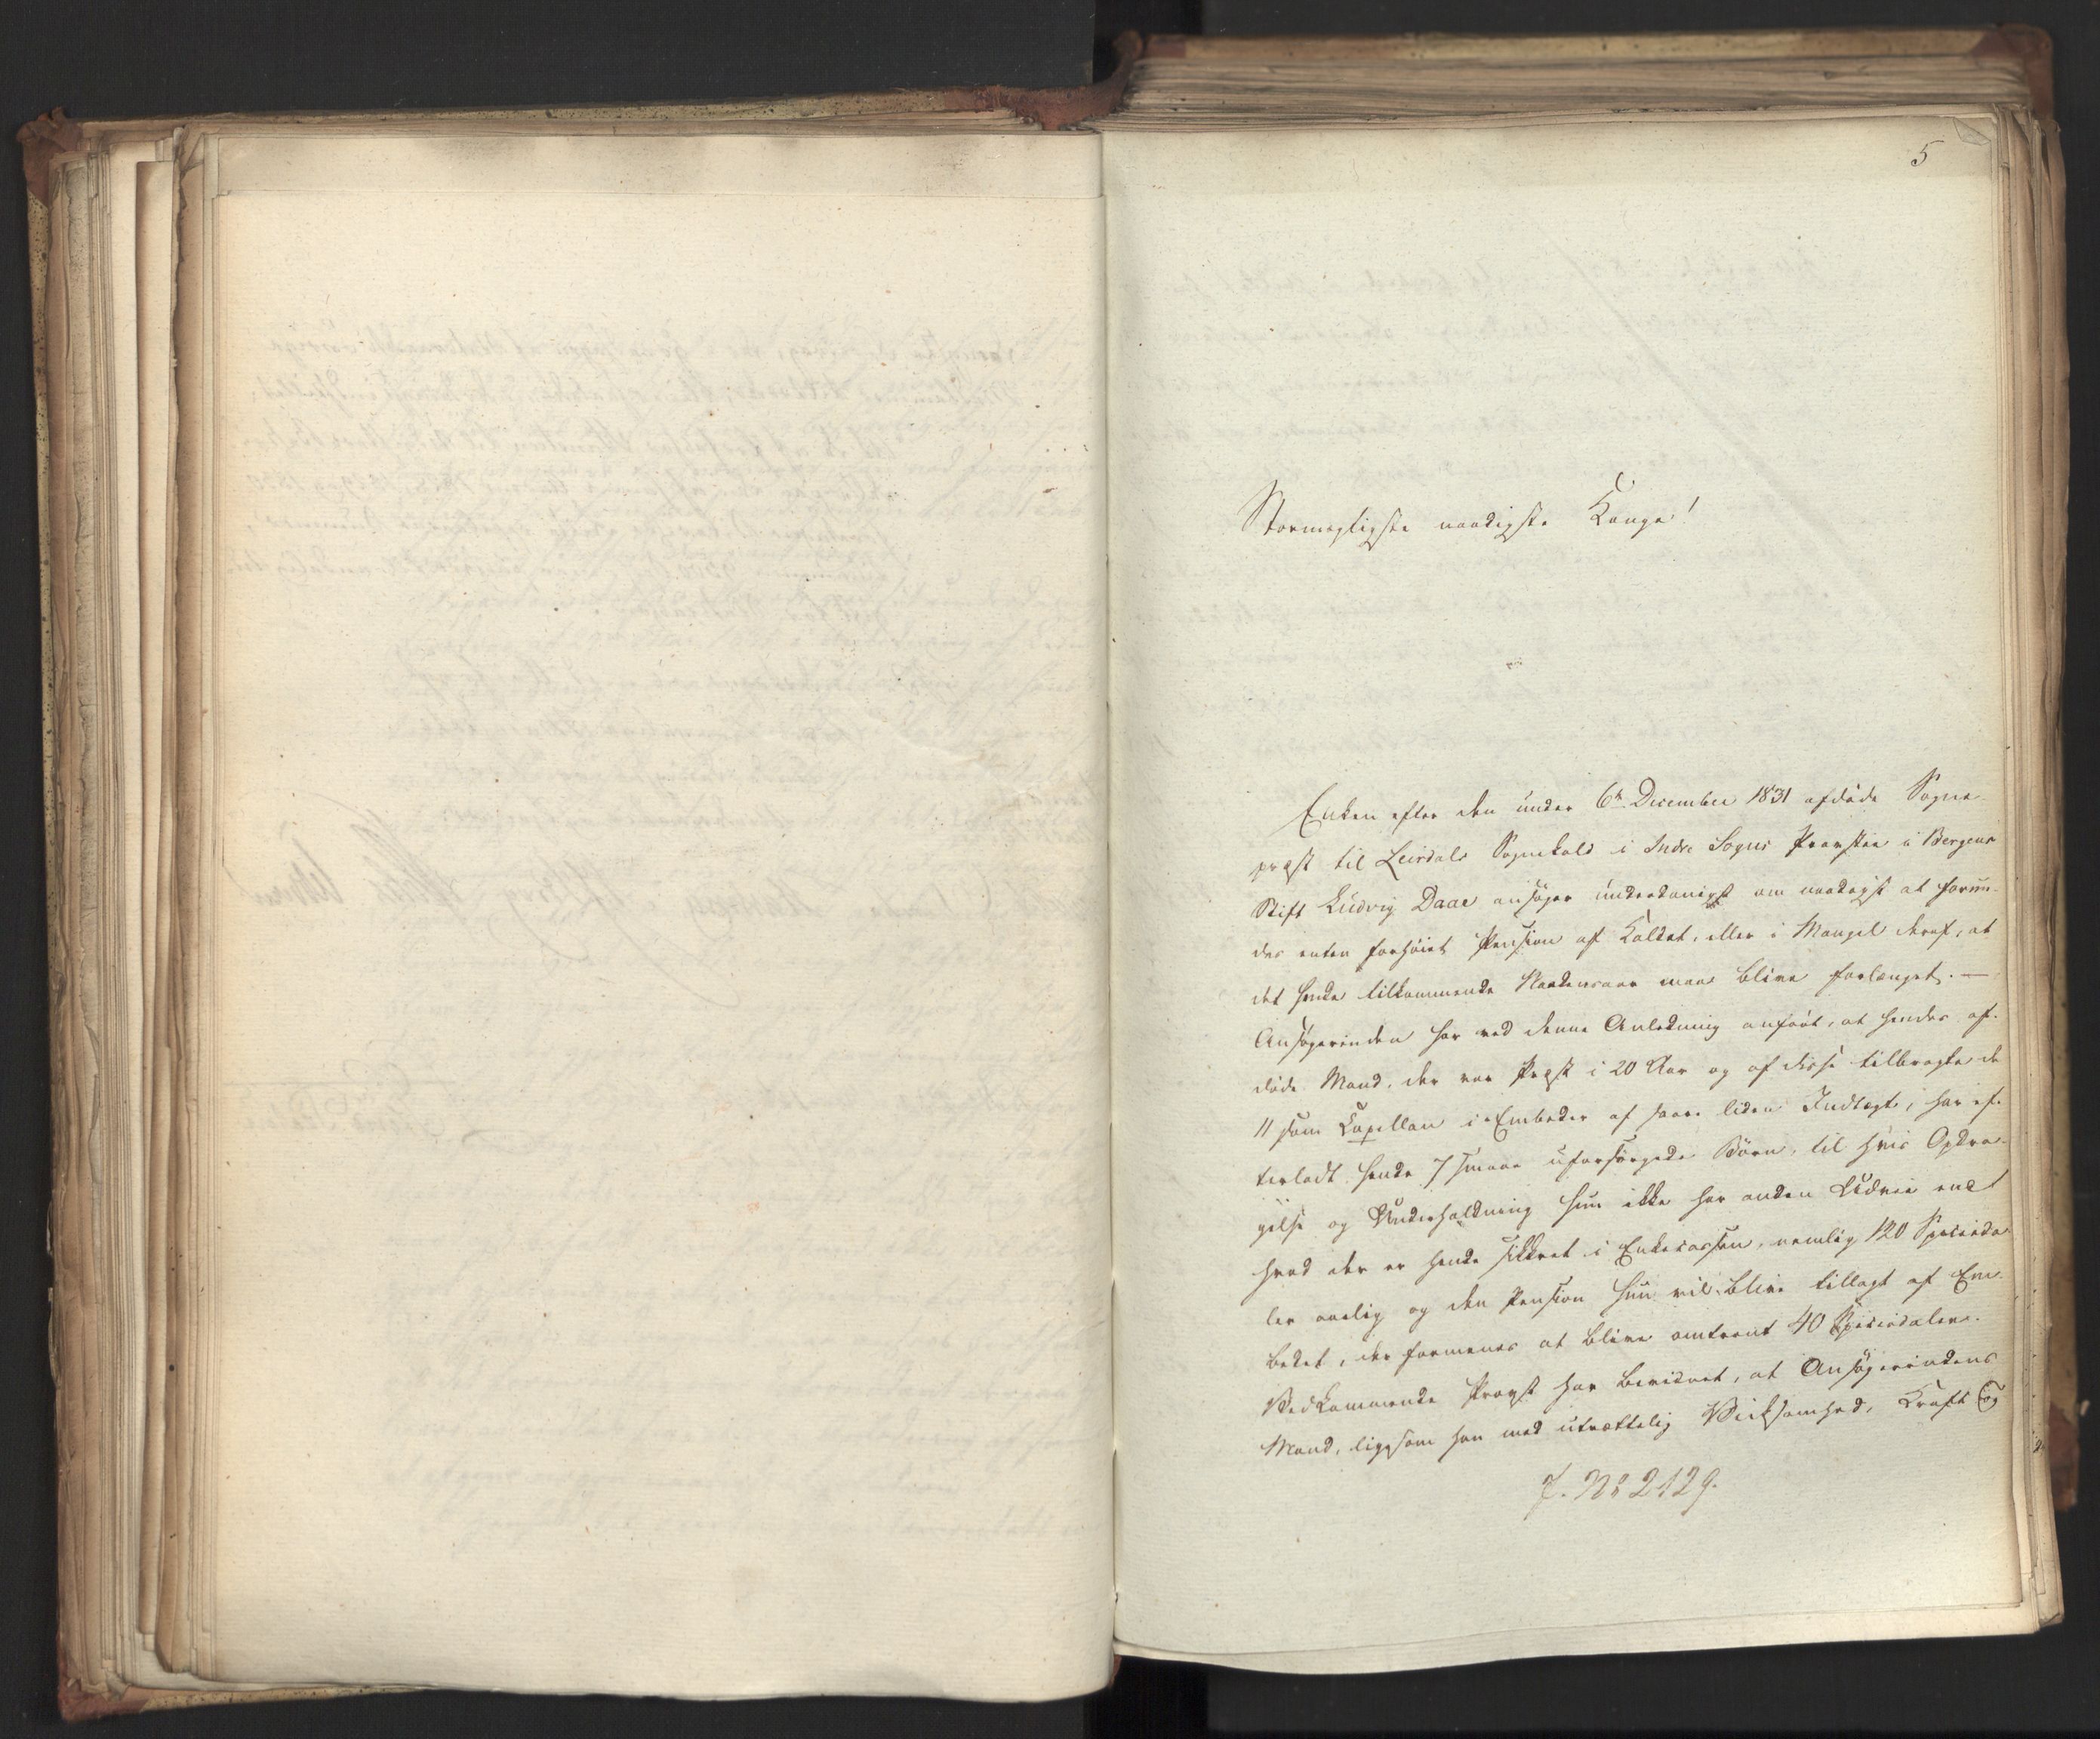 5
Stormægtigste naadigste Konge!
Enken efter den under 6te December 1831 afdøde Sogne-
præst til Leirdals Sognekald i Indre Sogns Provstie i Bergens
Stift Ludvig Daae ansøger underdanigst om naadigst at forun-
des enten forhøiet Pension af Kaldet, eller i Mangel deraf, at
det hende tilkommende Naadensaar maa blive forlænget. —
Ansøgerinden har ved denne Anledning anført, at hendes af-
døde Mand, der var Præst i 20 Aar og af disse tilbragte de
11 som Capellan i Embeder af saare liden Indtægt, har ef-
terladt hende 7 smaae uforsørgede Børn, til hvis Opdra-
gelse og Underholdning hun ikke har anden Udvei end
hvad der er hende sikkret i Enkecassen, nemlig 120 Speciesda-
ler aarlig og den Pension hun vil blive tillagt af Em-
bedet, der formenes at blive omtrent 40 Speciesdaler.
Vedkommende Provst har bevidnet, at Ansøgerindens
Mand, ligesom han med utrættelig Virksomhed, Kraft og
J. No 2129.